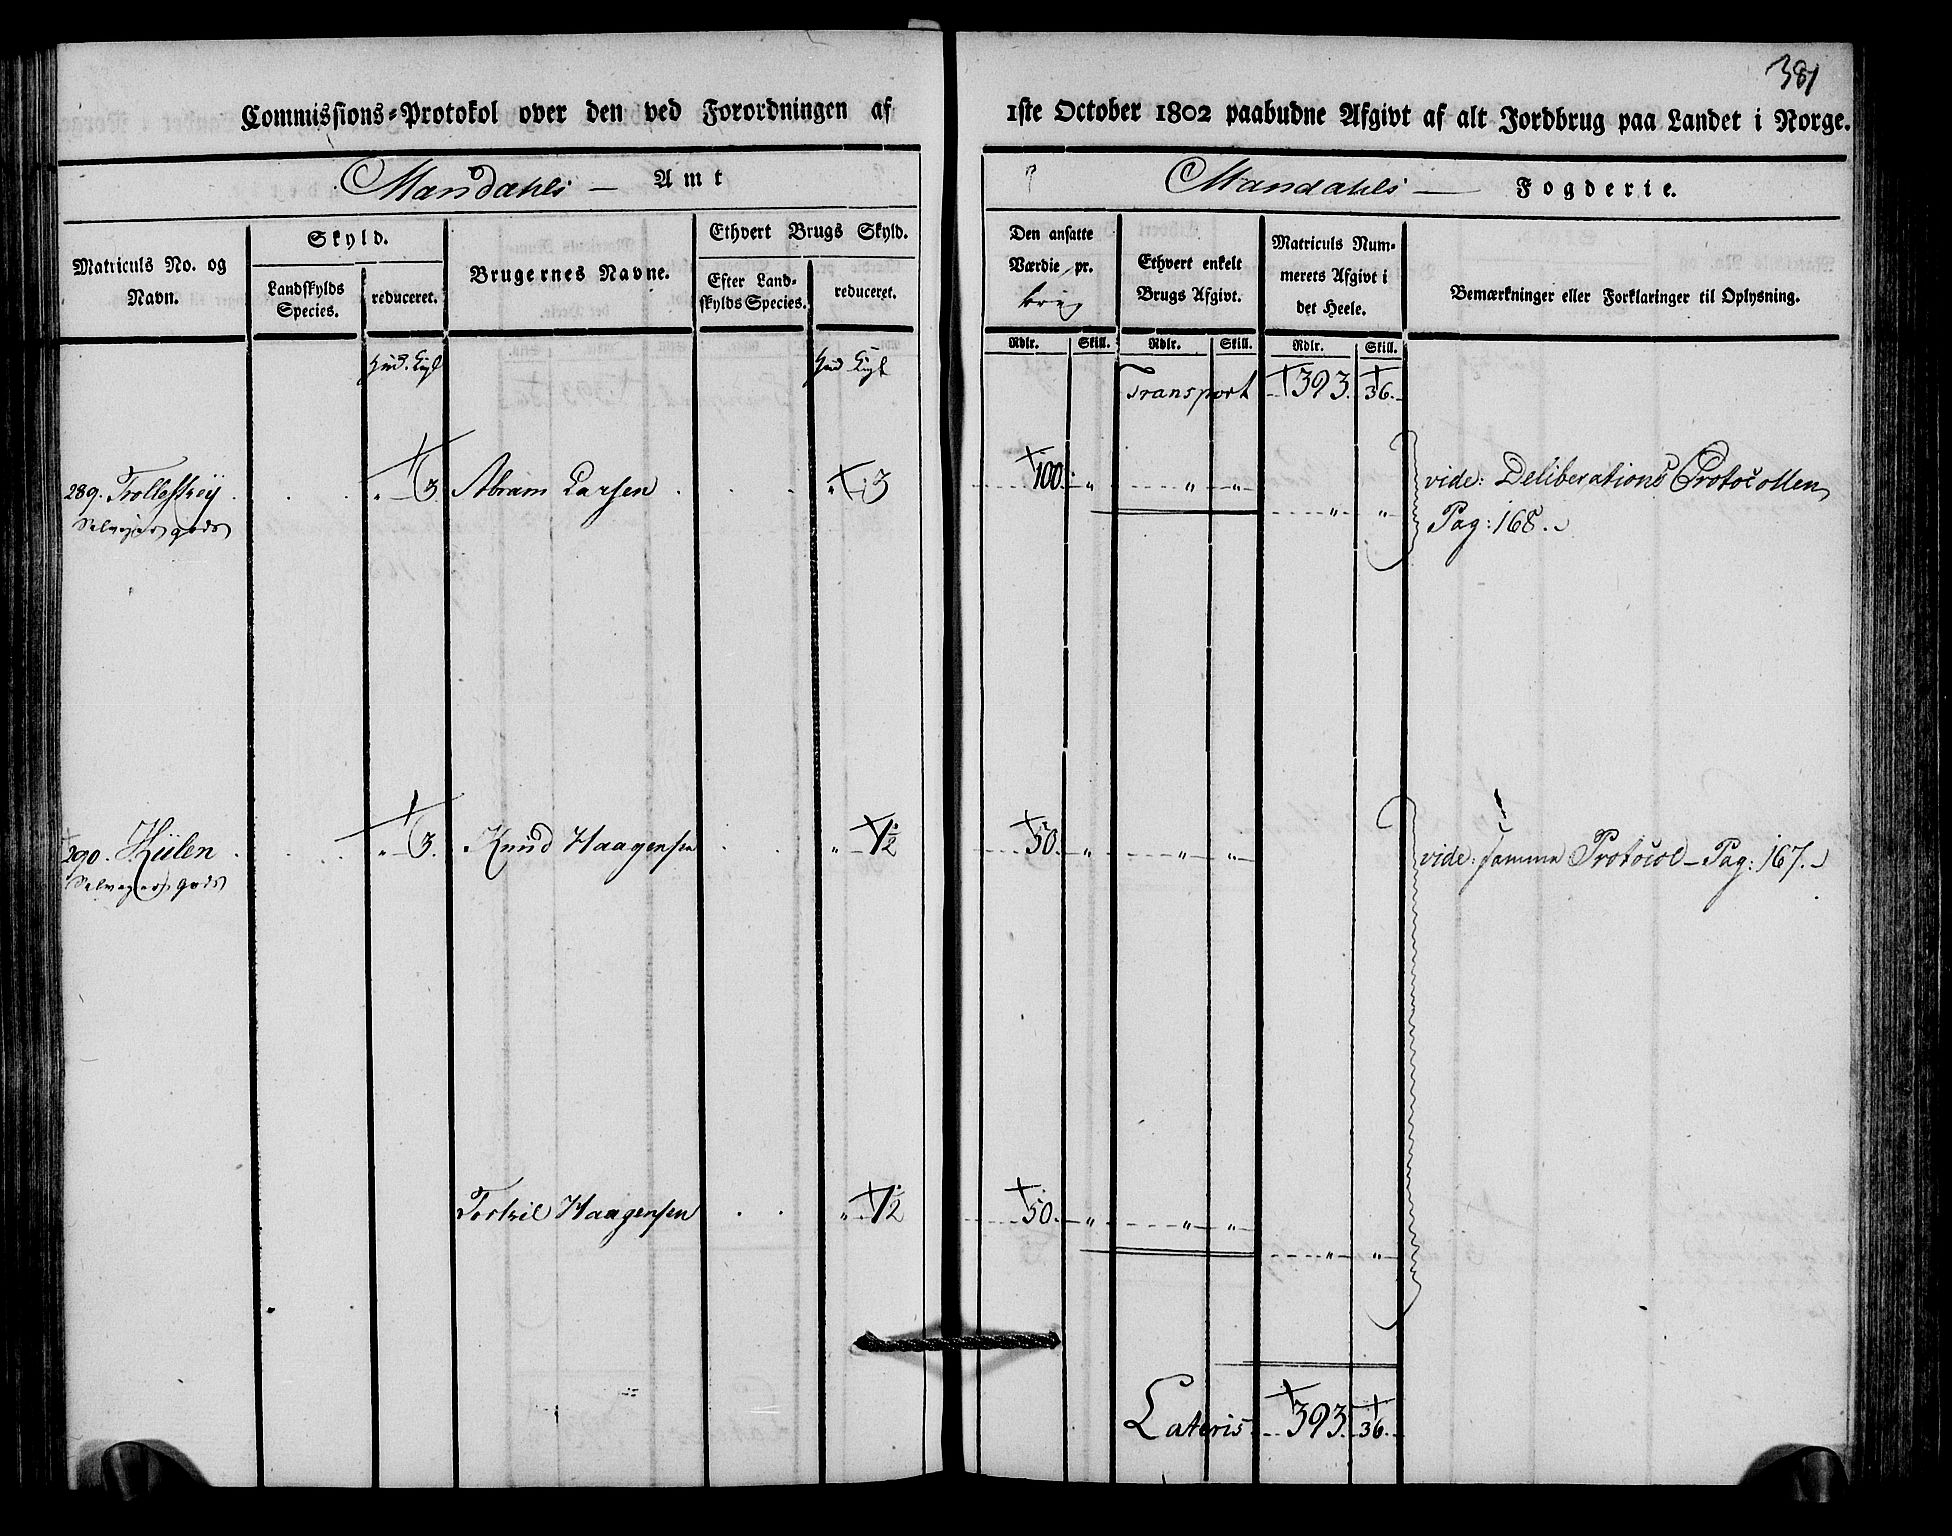 381
Commissions-Protokol over den ved Forordningen af 1ste October 1802 paabudne Afgivt af alt Jordbrug paa Landet i Norge.
Mandahls — Amt
Mandahls — Fogderie.
Matriculs No. og Navn.
Skyld.
Landskylds Species.
reduceret.
Brugernes Navne.
Ethvert Brugs Skyld.
Efter Landskylds Species.
reduceret.
Den ansatte Værdie pr. brug
Ethvert enkelt Brugs Afgivt.
Matriculs Nummerets Afgivt i det Heele.
Bemærkninger eller Forklaringer til Oplysning.
Rdlr. Skill. Rdlr. Skill. Rdlr. Skill.
Transport 393. 36.
289. Trollestøy . . . „ 3. Abram Larsen . . . „ 3 100. „ „ „ vide: Deliberations Protocollen
Selvejer gods „ „ Pag: 168.
290. Kiilen . . . „ 3. Knud Haagensen . . „ 1½ 50. „ „ „ vide: samme Protocol – Pag: 167.
Selvejer gods
Torkil Haagensen . . „ 1½ 50. „ „ „
„ „
Lateris 393. 36.